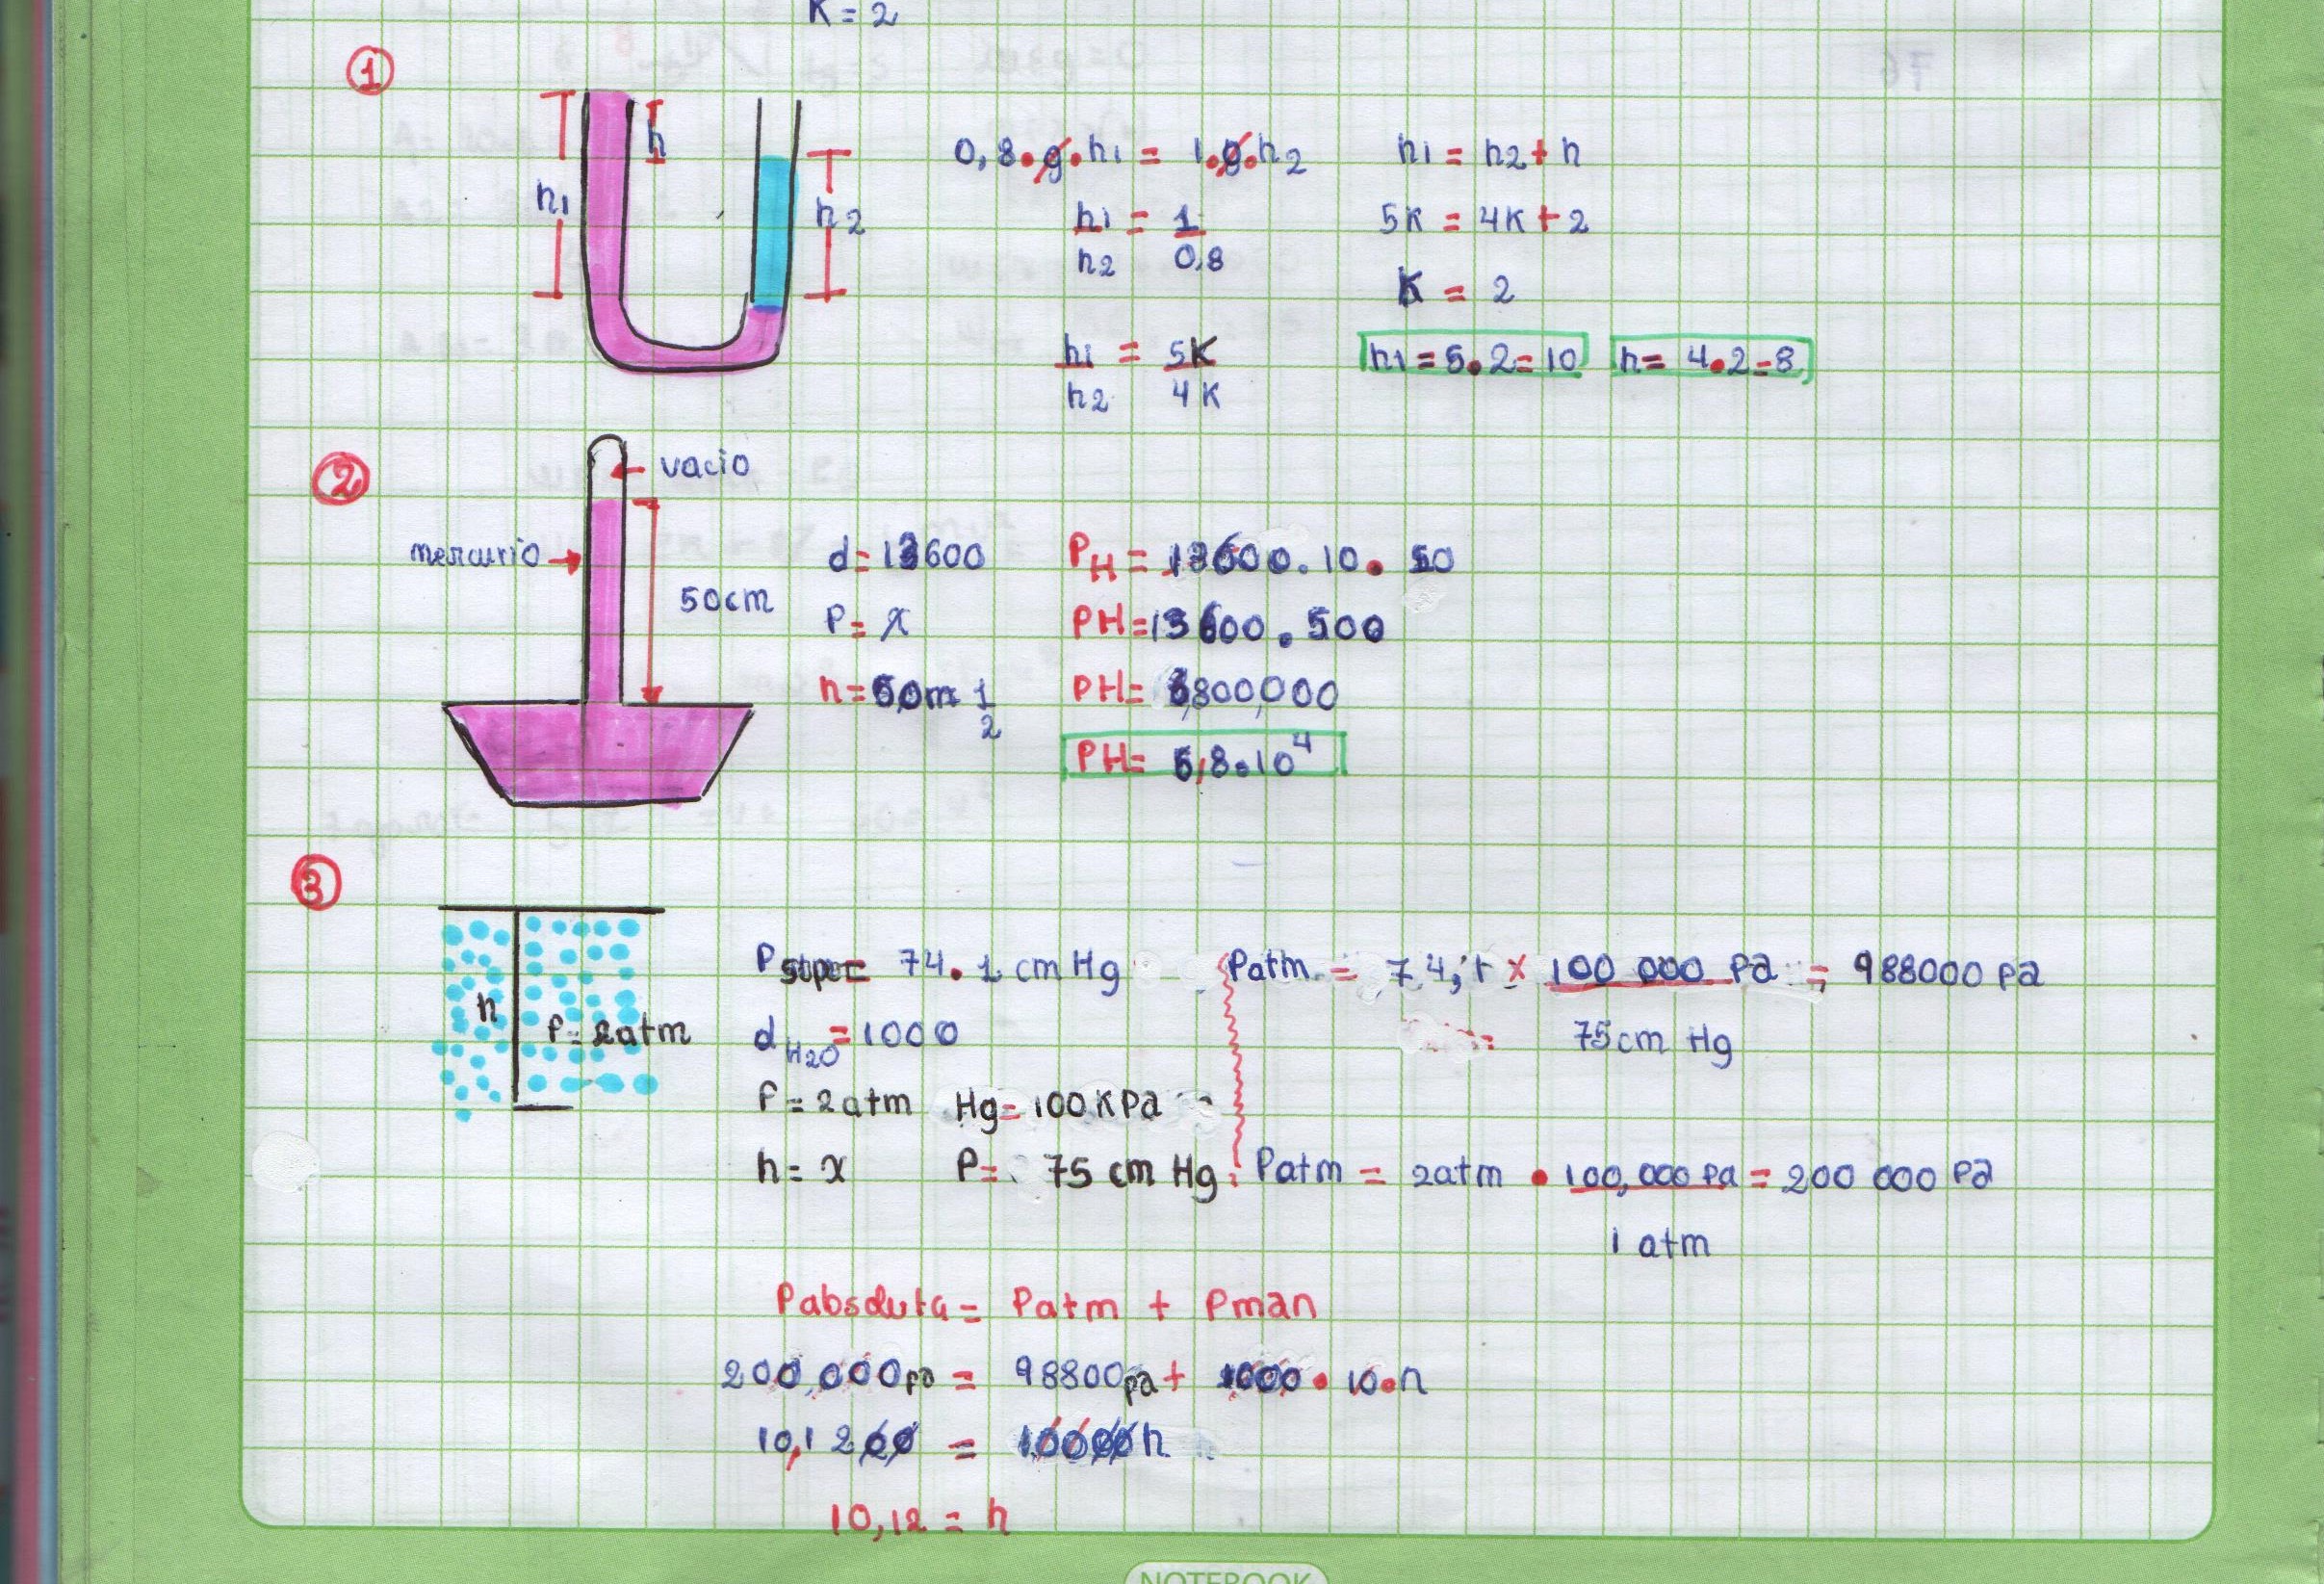 K = 2
1
h1
h
h2
0,8 . g . h1 = 1 . g . h2
h1 = h2 + h
h1 = 1
h2 0,8
5K = 4K + 2
K = 2
h1 = 5K
h2 4K
h1 = 5.2 = 10
h = 4.2 = 8
2
vacio
mercurio
50cm
d = 13600
P = x
h = 50m 1
2
PH = 13600 . 10 . 50
PH = 13600 . 500
PH = 6,800,000
PH = 6,8.10 4
3
h
P = 2atm
P super = 74.1 cm Hg
d H2O = 1000
P = 2atm Hg = 100 KPa
h = x P = 75 cm Hg
Patm = 74,1 x 100 000 Pa = 988000 Pa
75cm Hg
Patm = 2atm . 100,000 Pa = 200 000 Pa
1 atm
Pabsoluta = Patm + Pman
200,000pa = 98800pa + 1000 . 10 . h
10,1200 = 10000h
10,12 = h
NOTEBOOK